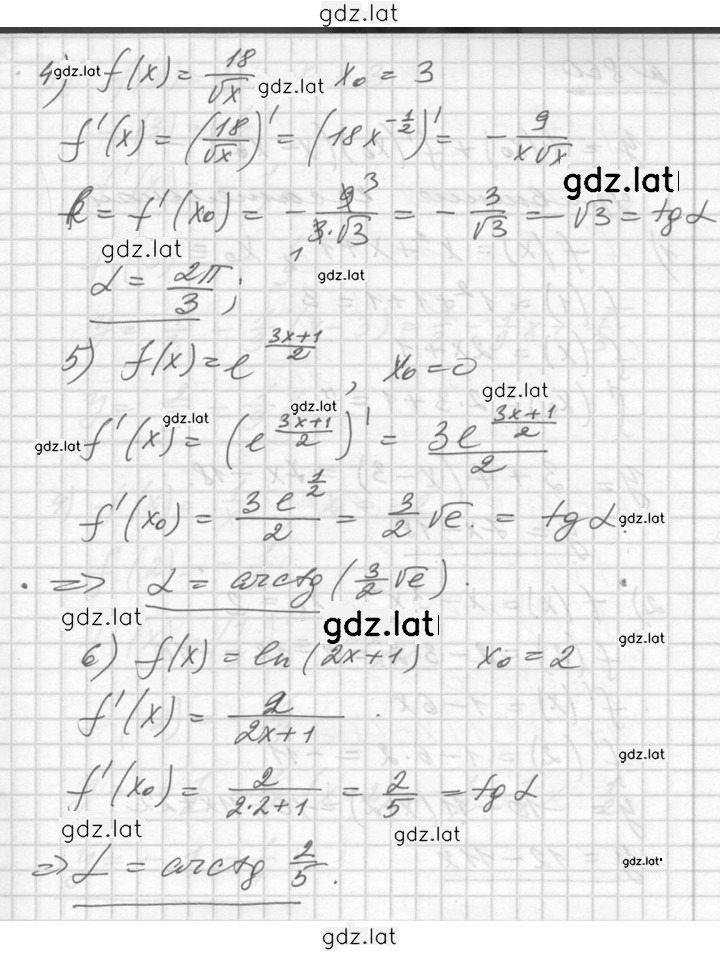 gdz.lat
4) gdz.lat f(x) = 18/√x gdz.lat x₀ = 3
f'(x) = (18/√x)' = (18x^(-1/2))' = - 9/(x√x)
gdz.lat
k = f'(x₀) = - 9³/(3₁·√3) = - 3/√3 = - √3 = tg α
gdz.lat gdz.lat
α = 2π/3 ;
5) f(x) = e^((3x+1)/2) , x₀ = 0
gdz.lat gdz.lat gdz.lat
gdz.lat f'(x) = (e^((3x+1)/2))' = 3e^((3x+1)/2)/2
f'(x₀) = 3e^(1/2)/2 = 3/2 √e. = tg α gdz.lat
=> α = arctg (3/2 √e) .
gdz.lat gdz.lat gdz.lat
6) f(x) = ln(2x+1) x₀ = 2
f'(x) = 2/(2x+1) .
gdz.lat
f'(x₀) = 2/(2·2+1) = 2/5 = tg α
gdz.lat gdz.lat
=> α = arctg 2/5 . gdz.lat
gdz.lat